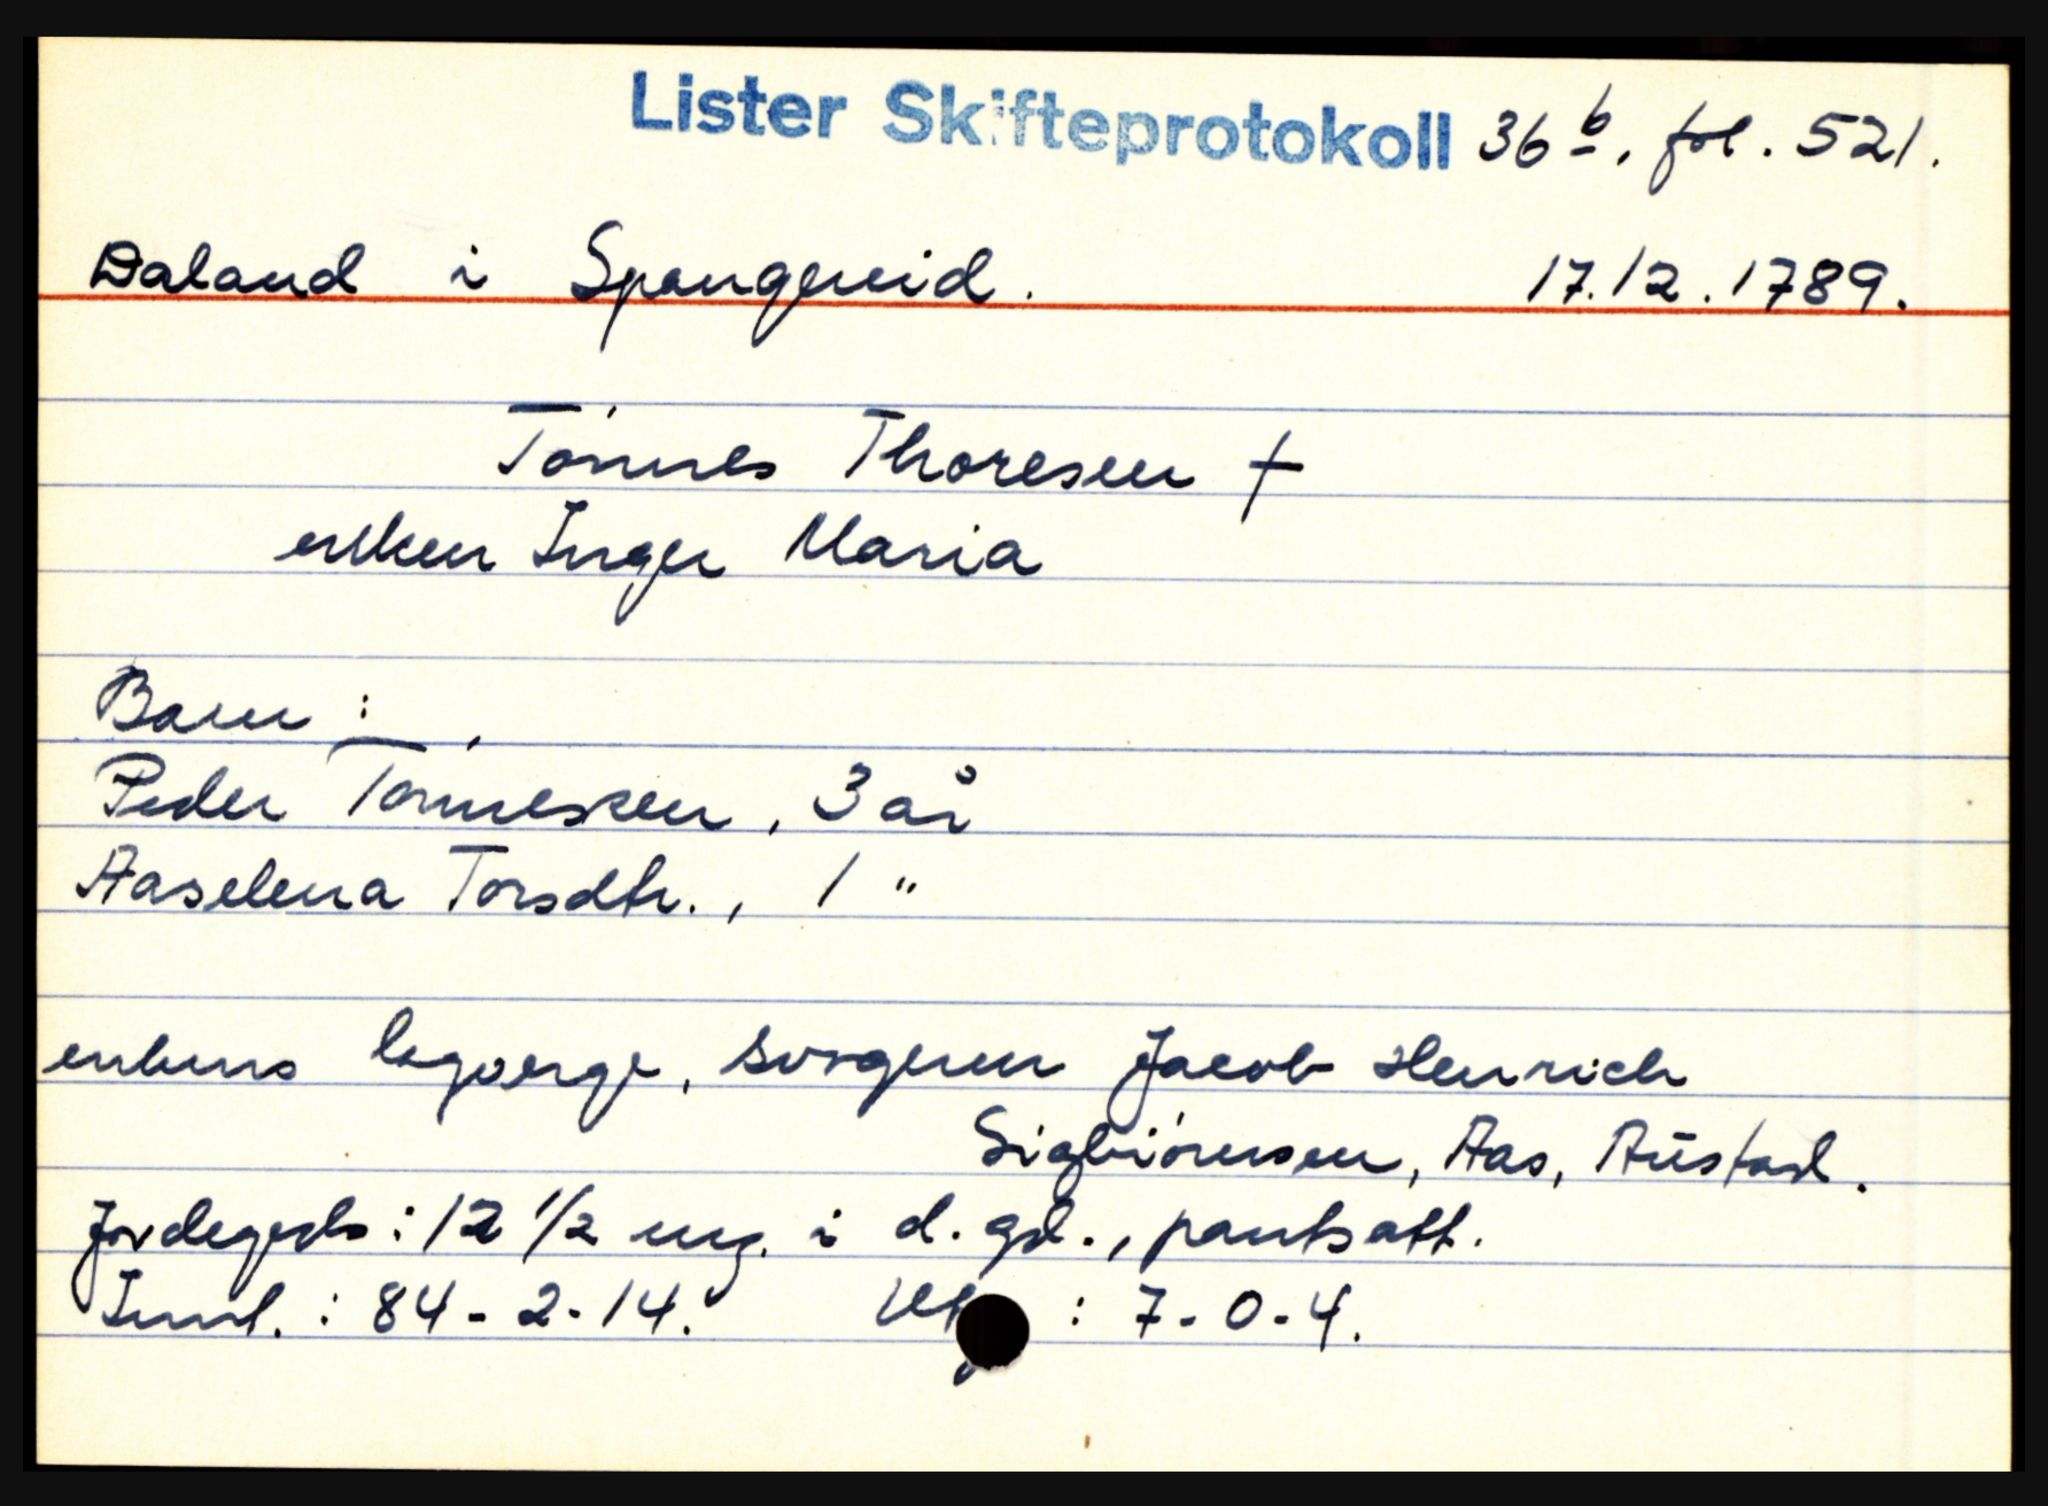 Lister Skifteprotokoll 36b, fol. 521.
Daland i Spangereid. 17.12.1789.
Tónnes Thoresen †
enken Inger Maria
Barn:
Peder Tónnessen, 3 år
Aaselena Torsdtr., 1 "
enkens lagverge, svogeren Jacob Henrich
Sigbiórnsen, Aas, Austad.
Jordegods: 12 1/2 mrg. i d. gd., pantsatt.
Innt.: 84-2-14. : 7-0-4.